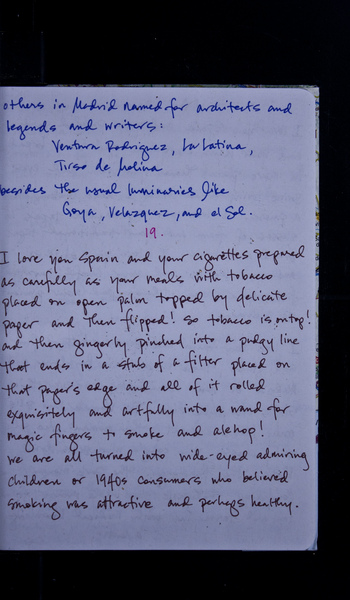 others in Madrid named for architects and
legends and writers:
Ventura Rodriguez, La Latina,
Tirso de Molina
besides the usual luminaries like
Goya, Velazquez, and el Sol.
19.
I love you Spain and your cigarettes prepared
as carefully as your meals with tobacco
placed on open palm topped by delicate
paper and then flipped! so tobacco is on top!
and then gingerly pinched into a pudgy line
that ends in a stub of a filter placed on
that paper's edge and all of it rolled
exquisitely and artfully into a wand for
magic fingers to smoke and alehop!
we are all turned into wide-eyed admiring
children or 1940s consumers who believed
smoking was attractive and perhaps healthy.